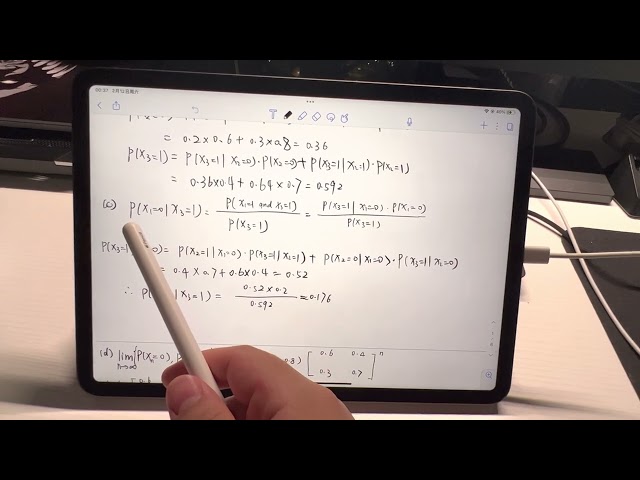 = 0.2×0.6 + 0.3×0.8 = 0.36
P(X₃=1) = P(X₃=1 | X₂=0)·P(X₂=0) + P(X₃=1 | X₂=1)·P(X₂=1)
= 0.36×0.4 + 0.64×0.7 = 0.592
(c) P(X₁=0 | X₃=1) = P(X₁=1 and X₃=1) / P(X₃=1) = P(X₃=1 | X₁=0)·P(X₁=0) / P(X₃=1)
P(X₃=1 =0) = P(X₂=1 | X₁=0)·P(X₃=1 | X₂=1) + P(X₂=0 | X₁=0)·P(X₃=1 | X₂=0)
= 0.4×0.7 + 0.6×0.4 = 0.52
∴ P( | X₃=1) = 0.52×0.2 / 0.592 = 0.176
(d) lim n→∞ [P(Xₙ=0), P .8) [0.6 0.4
0.3 0.7]ⁿ